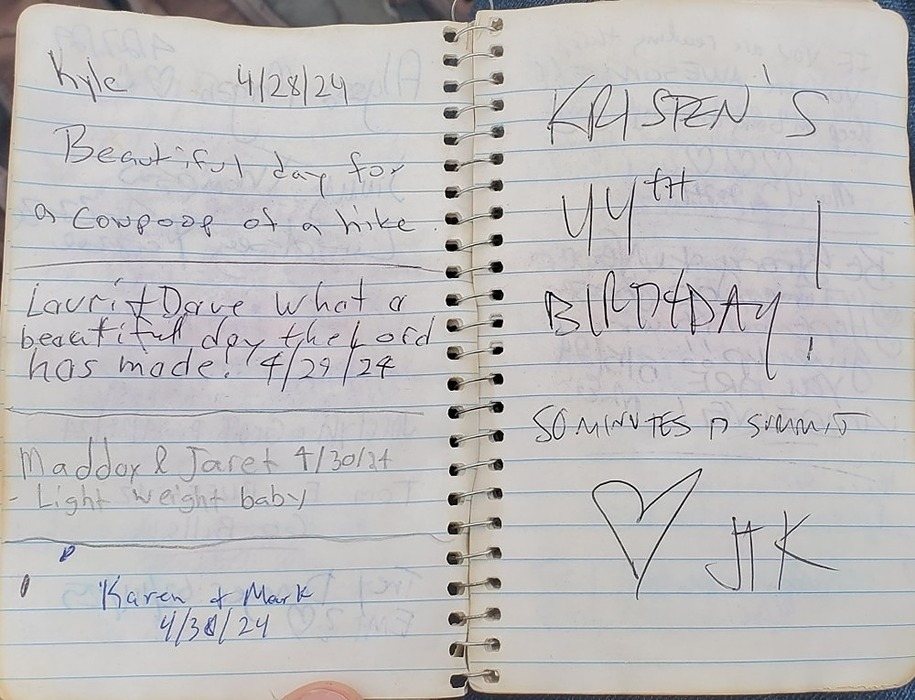 Kyle 4/28/24
Beautiful day for
a cowpoop of a hike.
Lauri + Dave What a
beautiful day the Lord
has made! 4/29/24
Maddox & Jaret 4/30/24
- Light weight baby
Karen + Mark
4/30/24
KRISTEN'S
44TH
BIRTHDAY!
50 MINUTES TO SUMMIT